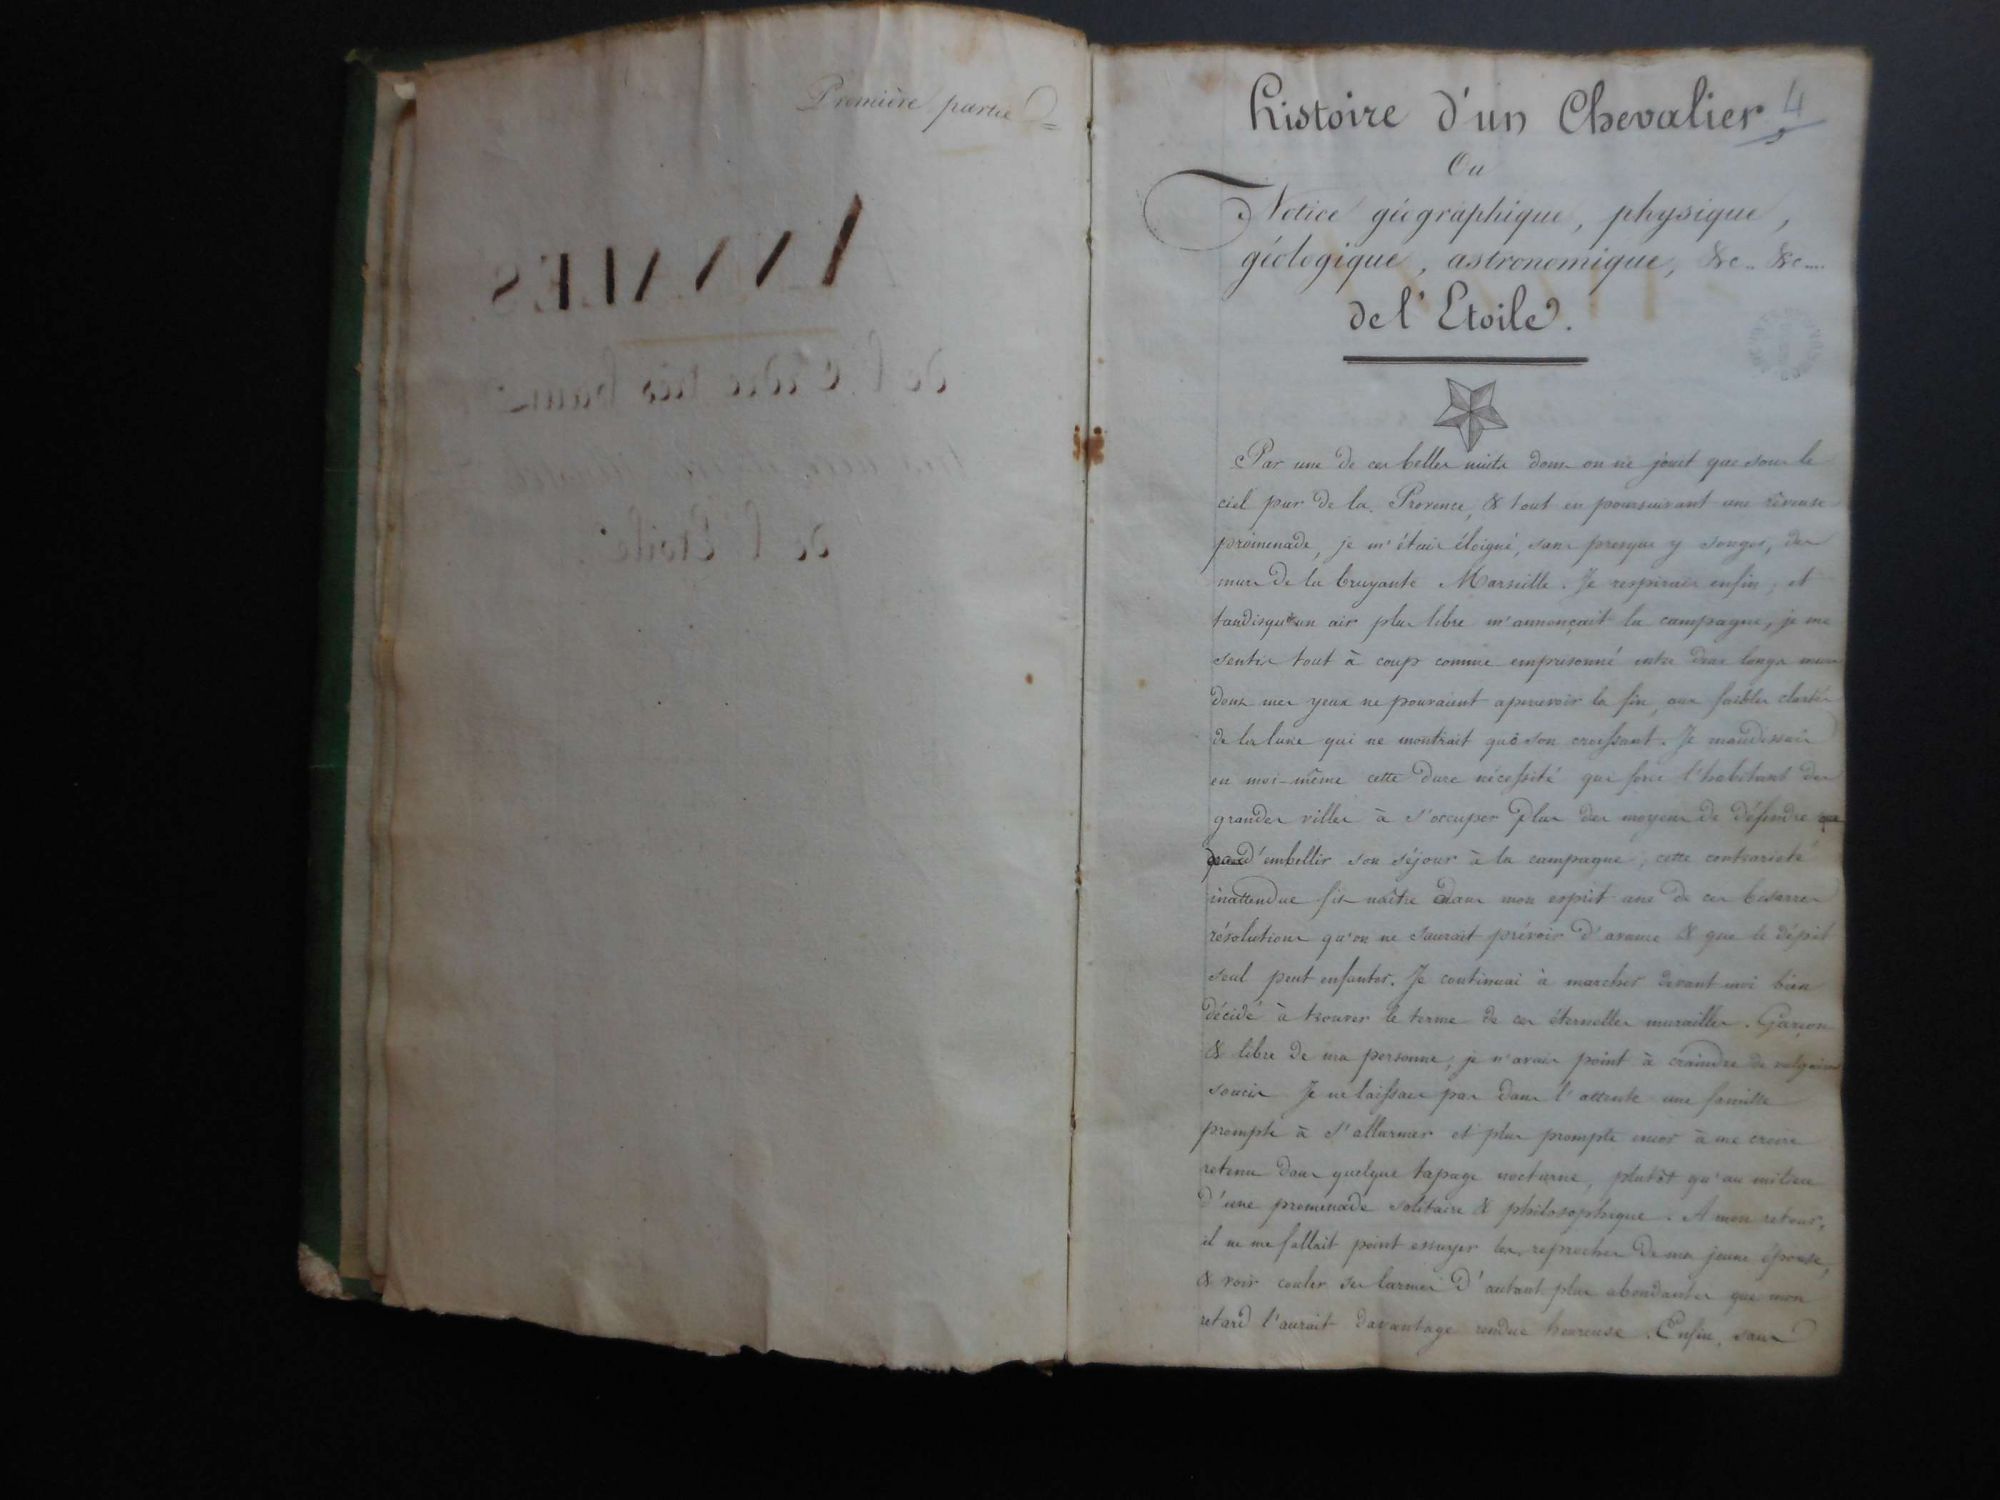 Première partie
ANNALES
de l'Ordre très haut
de l'Etoile.
4
histoire d'un Chevalier
Ou
Notice géographique, physique,
géologique, astronomique, &c.. &c....
de l'Etoile.
Par une de ces belles nuits dont on ne jouit que sous le
ciel pur de la Provence, & tout en poursuivant une rêveuse
promenade, je m'étais éloigné, sans presque y songer, des
murs de la bruyante Marseille. Je respirais enfin, et
tandisqu'un air plus libre m'annonçait la campagne, je me
sentis tout à coup comme emprisonné entre deux longs murs
dont mes yeux ne pouvaient apercevoir la fin, aux faibles clartés
de la lune qui ne montrait que son croissant. Je maudissais
en moi-même cette dure nécessité qui force l'habitant des
grandes villes à s'occuper plus des moyens de défendre que
d'embellir son séjour à la campagne; cette contrariété
inattendue fit naître dans mon esprit une de ces bisarres
résolutions qu'on ne saurait prévoir d'avance & que le dépit
seul peut enfanter. Je continuai à marcher devant moi bien
décidé à trouver le terme de ces éternelles murailles. Garçon
& libre de ma personne, je n'avais point à craindre de vulgaires
soucis. Je ne laissais pas dans l'attente une famille
prompte à s'allarmer et plus prompte encor à me croire
retenu dans quelque tapage nocturne, plutôt qu'au milieu
d'une promenade solitaire & philosophique. A mon retour,
il ne me fallait point essuyer les reproches de ma jeune épouse,
& voir couler ses larmes d'autant plus abondantes que mon
retard l'aurait davantage rendue heureuse. Enfin, sans